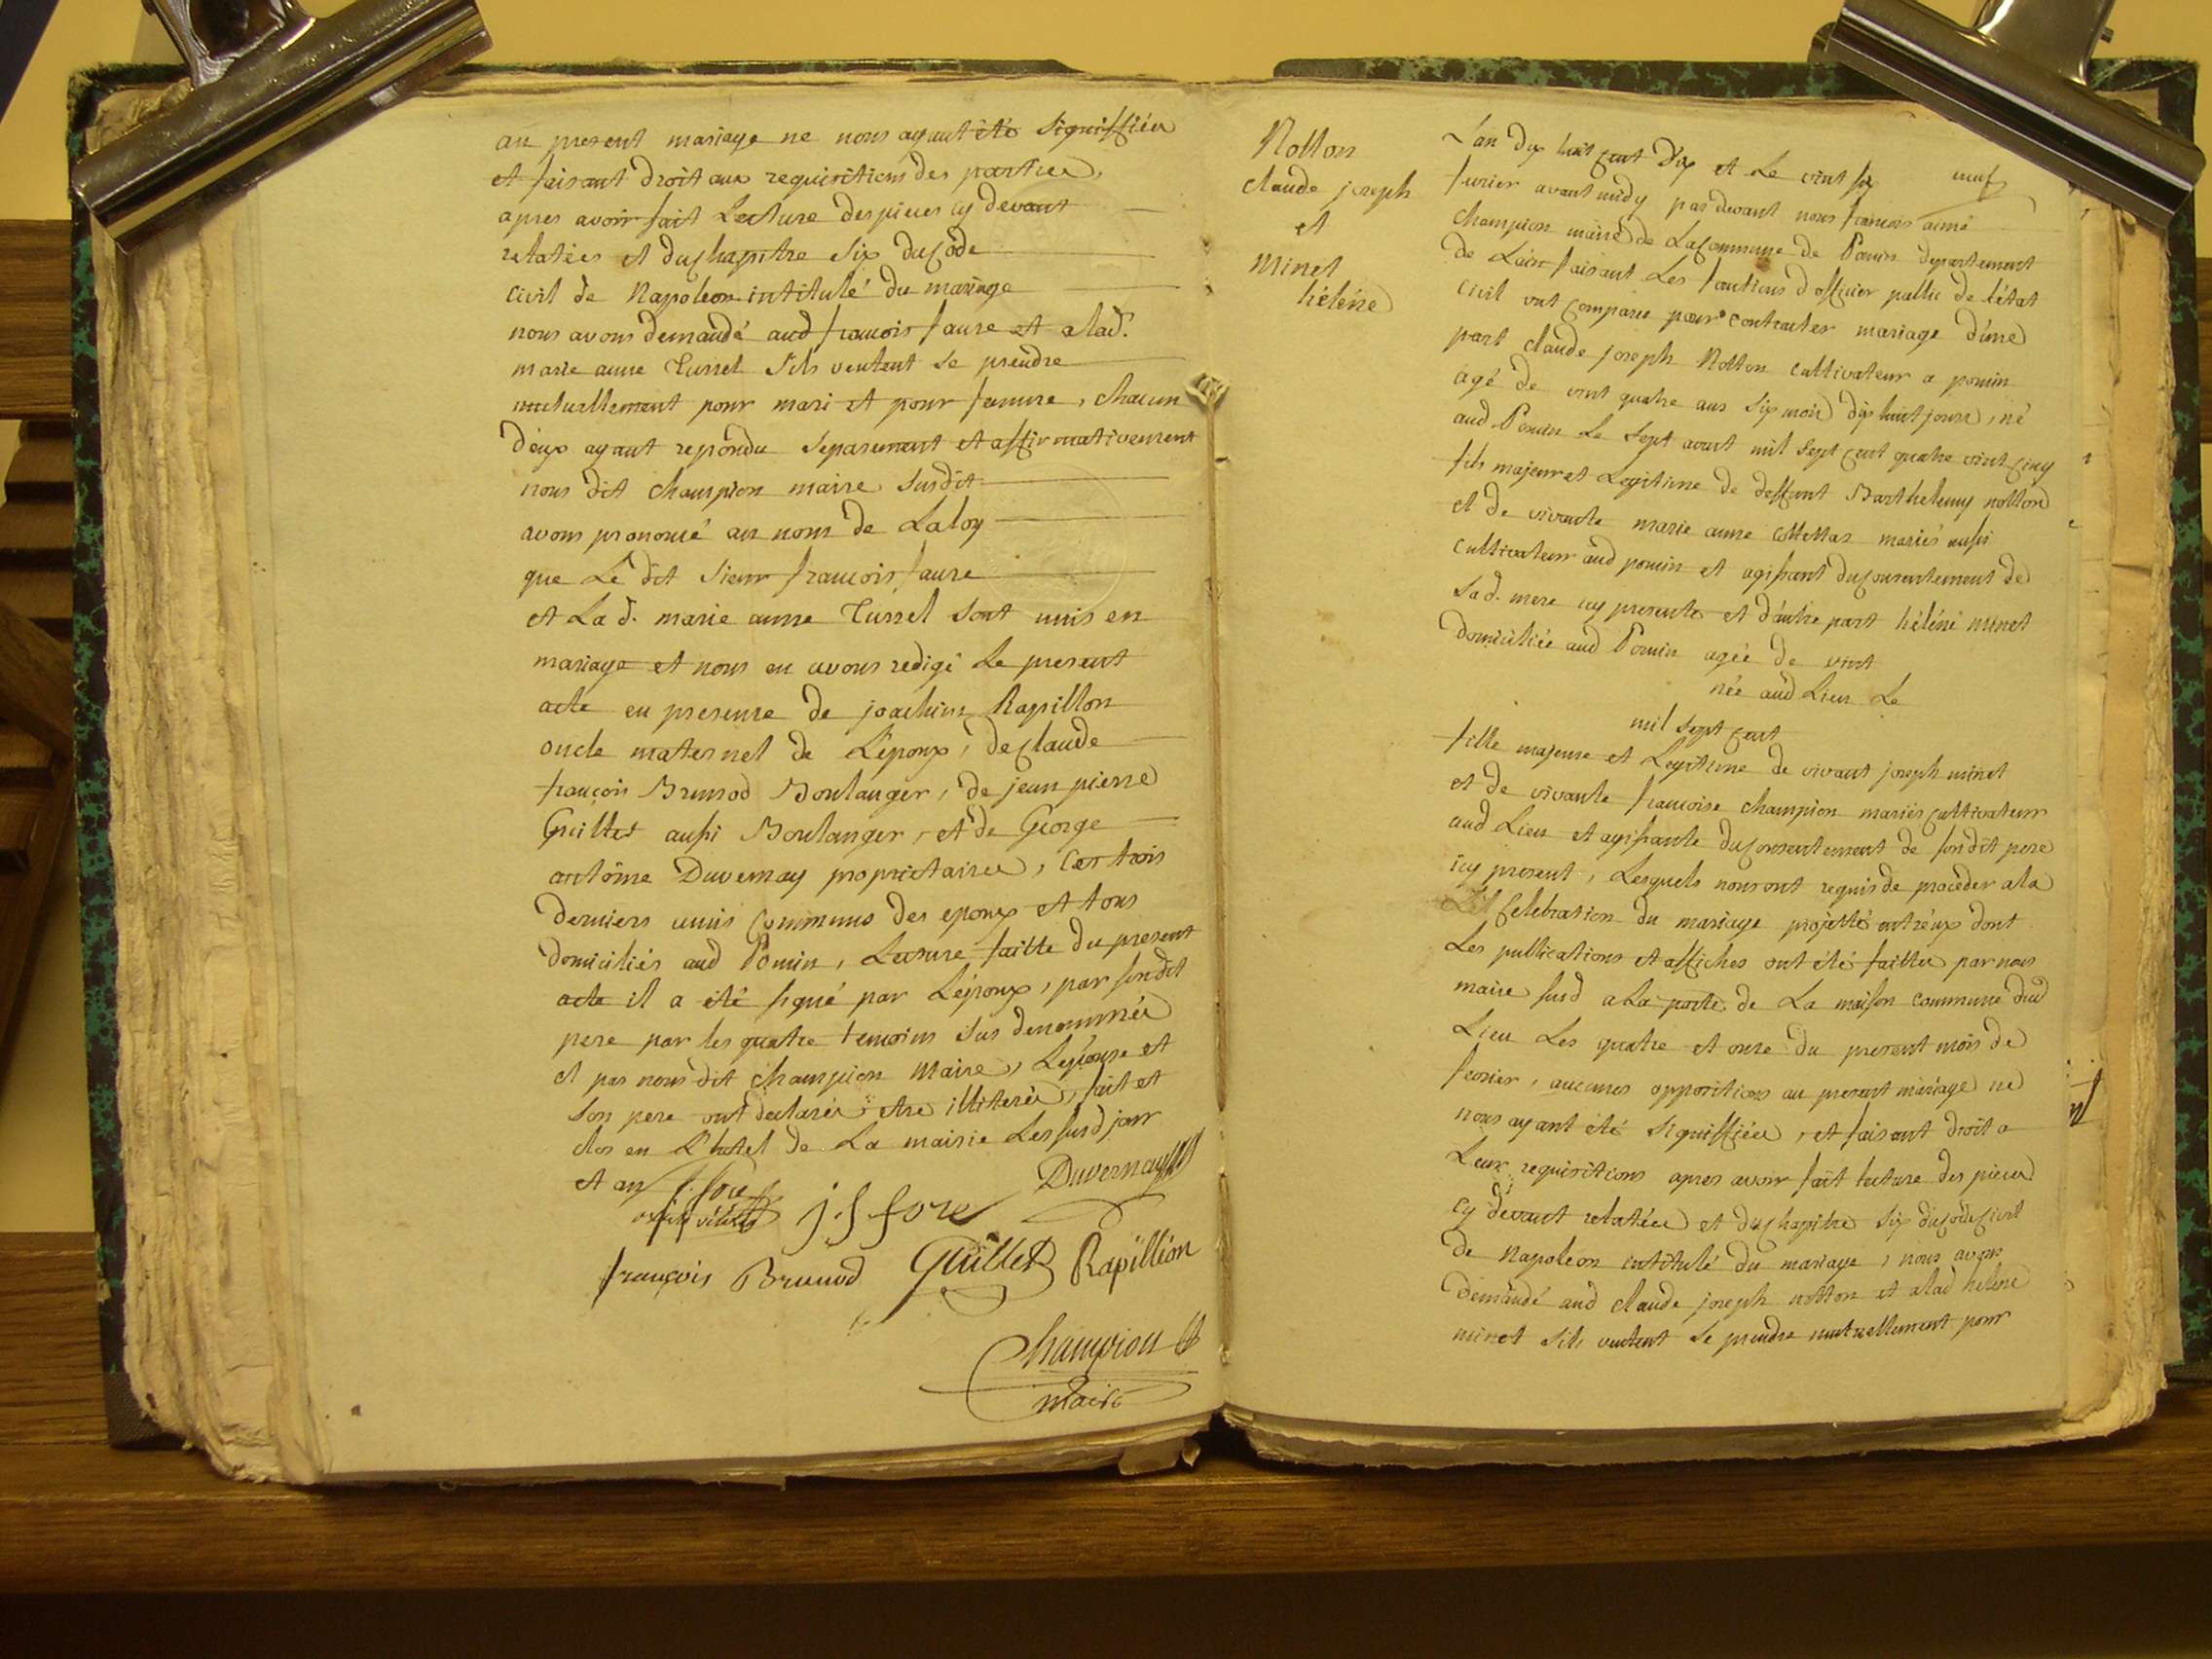 au present mariage ne nous ayant été signiffiées
et faisant droit aux requisitions des parties,
apres avoir fait Lecture des pieces cy devant
relatées et du chapitre six du Code
civil de Napoleon intitulé du mariage
nous avons demandé aud francois faure et a lad.
marie anne Turrel s'ils veulent se prendre
mutuellement pour mari et pour femme, chacun
d'eux ayant repondu separement et affirmativement
nous dit Champion maire susdit
avons prononcé au nom de La loy
que Le dit sieur francois faure
et La d. marie anne Turrel sont unis en
mariage et nous en avons redigé Le present
acte en presence de joachim Rapillon
oncle maternel de L'epoux, de claude
françois Brunod Boulanger, de jean pierre
Guillet aussi Boulanger, et de George
antoine Duvernay proprietaires, ces trois
derniers amis communs des epoux et tous
domiciliés aud Poncin, Lecture faitte du present
acte il a été signé par L'epoux, par son dit
pere par les quatre temoins sus denommés
et par nous dit Champion Maire, L'epouse et
son pere ont declarés etre illiterés, fait et
clos en L'hotel de La mairie Les susd jour
et an
j. f fore Duvernay
françois Brunod Guillet Rapillion
Champion
maire
Notton
claude joseph
et
Minet
héléne
L'an dix huit cent dix et Le vint six neuf
fevrier avant midy par devant nous francois aimé
Champion maire de La Commune de Poncin departement
de L'ain faisant Les fonctions d'officier public de l'état
civil ont comparu pour contracter mariage d'une
part claude joseph Notton cultivateur a poncin
agé de vint quatre ans six mois dix huit jours, né
aud Poncin Le sept aout mil sept cent quatre vint cinq
fils majeur et Legitime de deffunt Barthelemy notton
et de vivante marie anne mariés aussi
cultivateurs aud poncin et agissant du consentement de
Sad. mere icy presente et d'autre part héléne minet
domiciliée aud Poncin agée de vint
née aud Lieu Le
mil sept cent
fille majeure et Legitime de vivant joseph minet
et de vivante francoise Champion mariés cultivateurs
aud Lieu et agissante du consentement de son dit pere
icy present, Lesquels nous ont requis de proceder a la
Celebration du mariage projetté entr'eux dont
Les publications et affiches ont été faittes par nous
maire susd a La porte de La maison commune dud
Lieu Les quatre et onze du present mois de
fevrier, aucunes oppositions au present mariage ne
nous ayant été signiffiées, et faisant droit a
Leur requisitions apres avoir fait lecture des pieces
cy devant relatées et du chapitre six du code civil
de Napoleon intitulé du mariage, nous avons
demandé aud claude joseph notton et a lad helene
minet s'ils veulent se prendre mutuellement pour